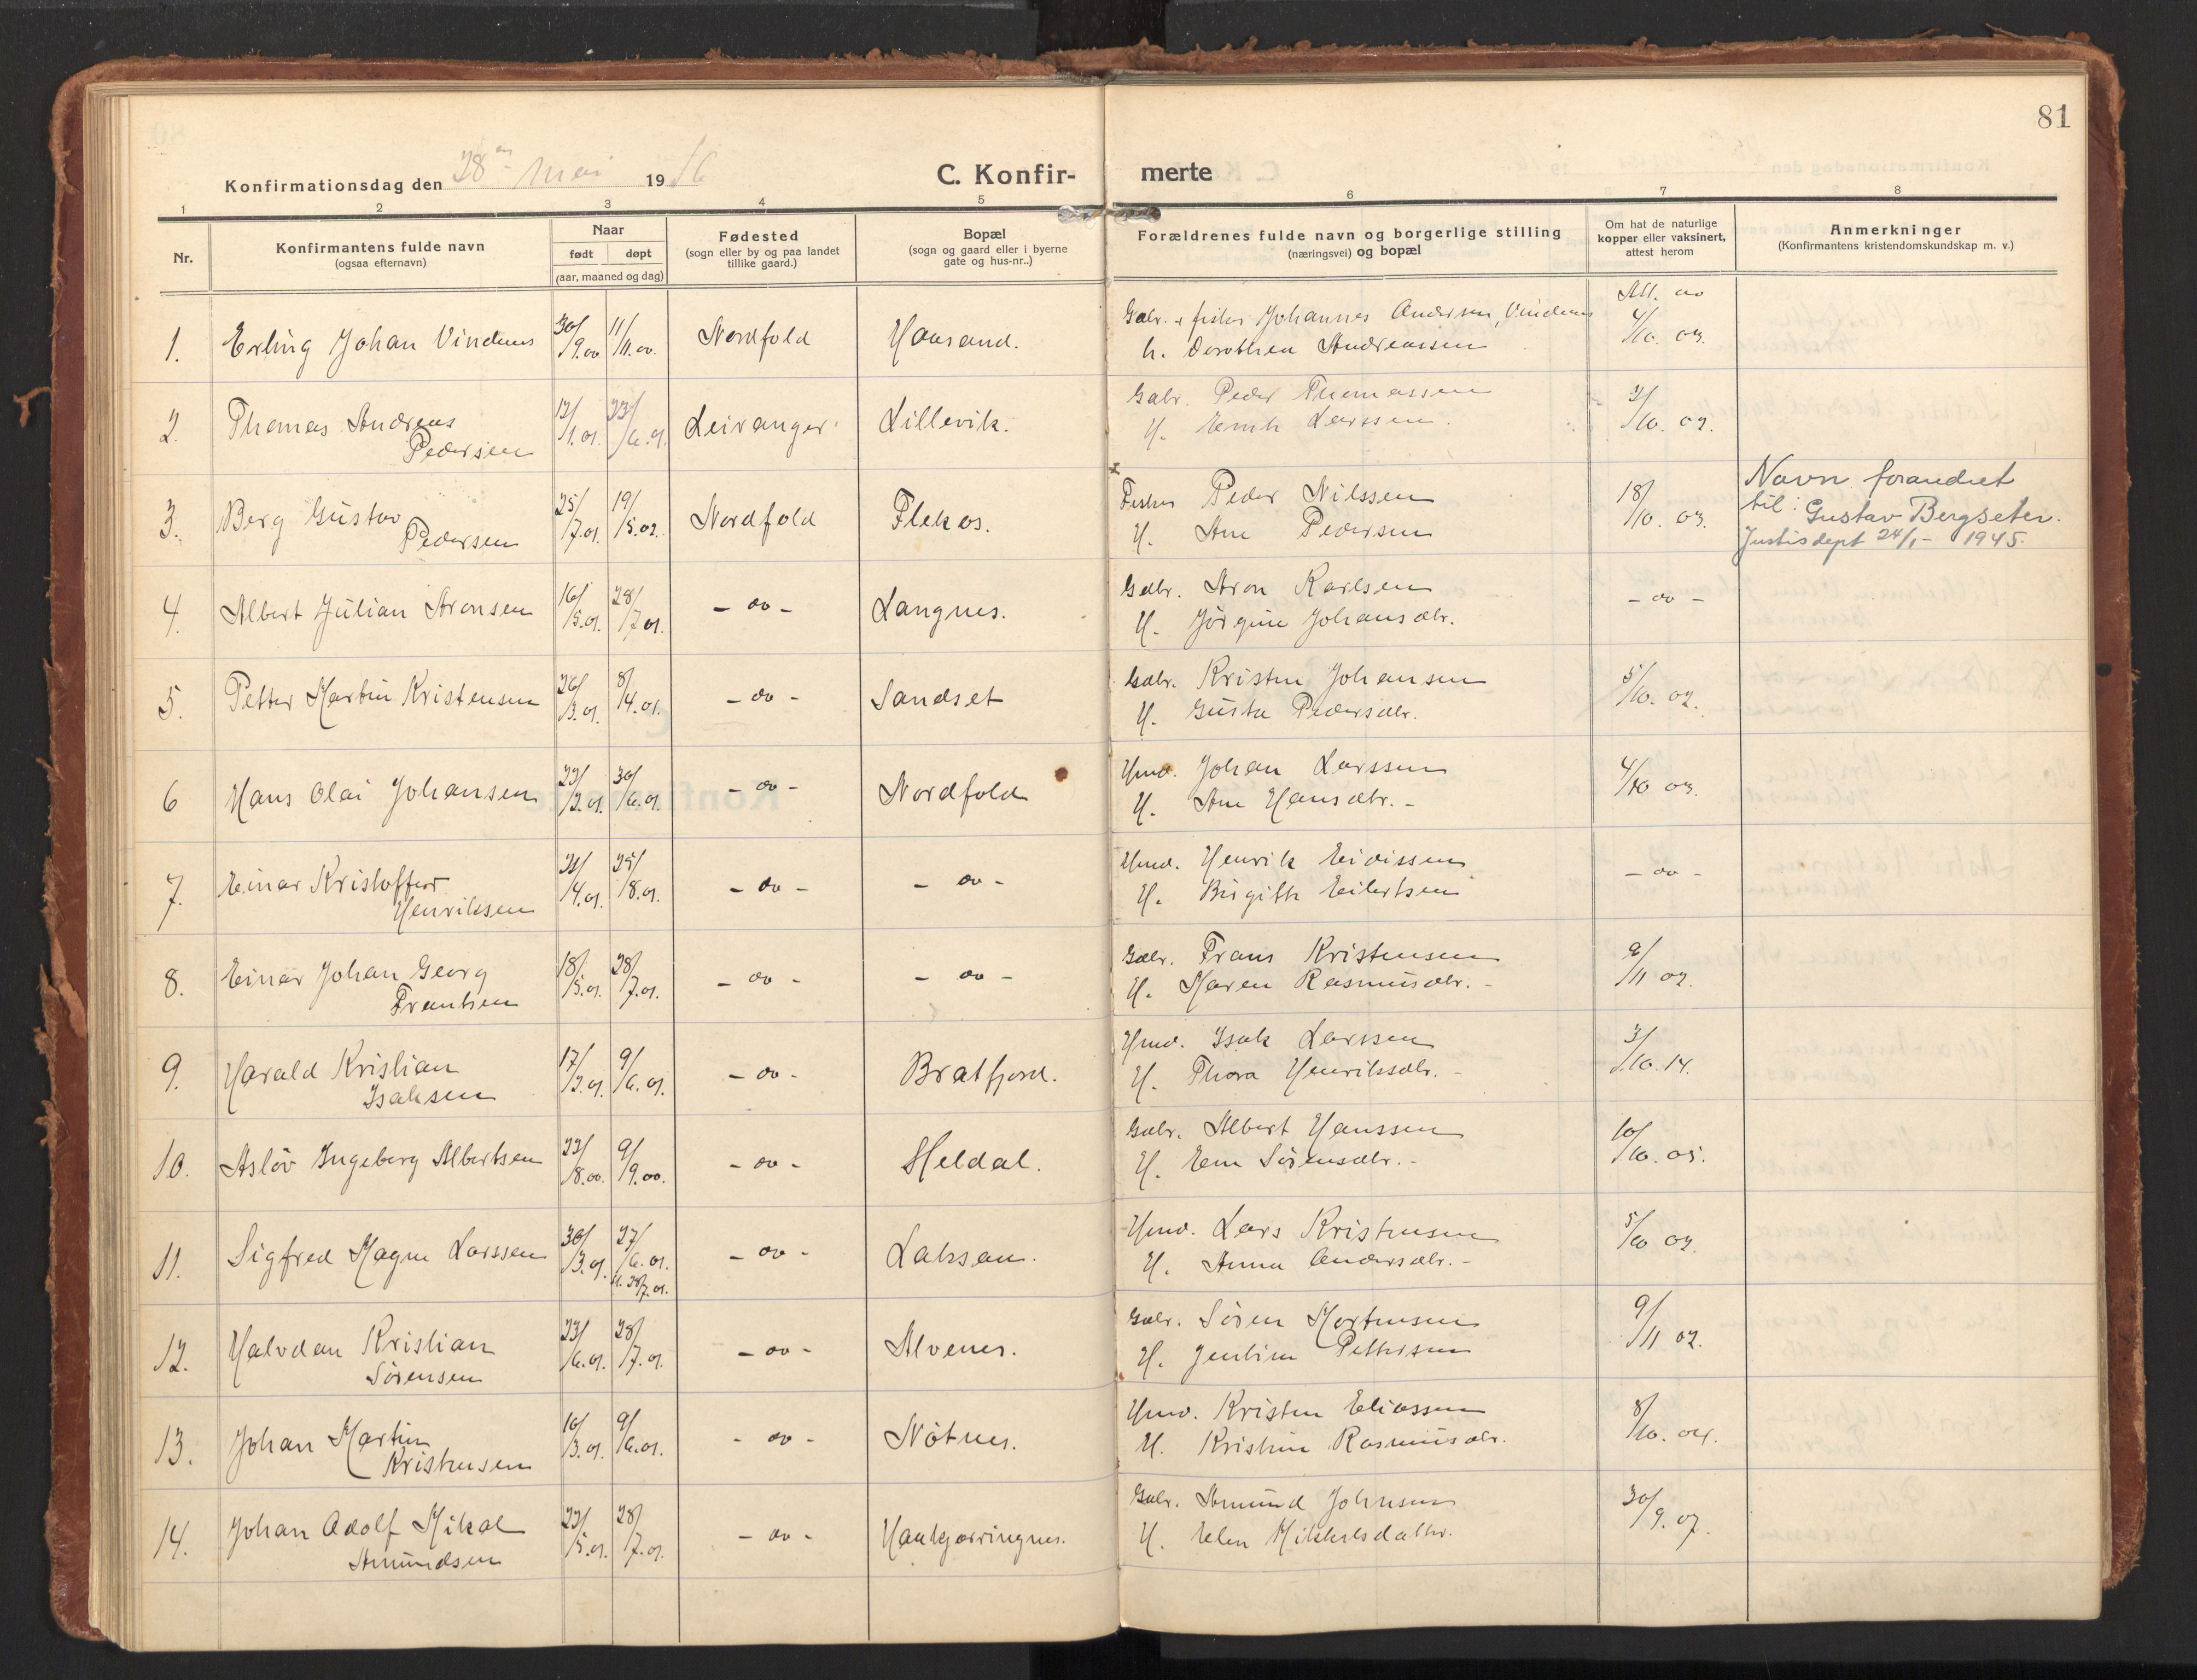 81
Konfirmationsdag den 28de mai 1916
C. Konfir-merte
1 2 3 4 5 6 7 8
Nr.
Konfirmantens fulde navn
(ogsaa efternavn)
Naar
født døpt
(aar, maaned og dag)
Fødested
(sogn eller by og paa landet
tillike gaard.)
Bopæl
(sogn og gaard eller i byerne
gate og hus-nr..)
Forældrenes fulde navn og borgerlige stilling
(næringsvei) og bopæl
Om hat de naturlige
kopper eller vaksinert,
attest herom
Anmerkninger
(Konfirmantens kristendomskundskap m. v.)
1. Erling Johan Vindenes 30/9.00 11/11.00. Nordfold Haasand. Gdbr. & fisker Johannes Andersen, Vindenes Att. av 4/10. 03.
h. Dorothea Andreassen
2. Thomas Andreas Pedersen 12/1.01. 23/6.01 Leiranger Lillevik. Gdbr. Peder Thomassen 2/10. 02.
H. Larssen.
3. Berg Gustav Pedersen 25/7.01. 19/5.02. Nordfold Flekos. Fisker Peder Nilssen 18/10. 03.
H. Ane Pedersen
Navn forandret
til: Gustav Bergseter.
Justisdept 24/1- 1945.
4. Albert Julian Aronsen 16/5.01. 28/7 01. - do - Langnes. Gdbr. Aron Karlsen - do -
H. Jørgine Johansdtr.
5. Petter Martin Kristensen 26/3.01. 8/4.01. - do - Sandset Gdbr. Kristen Johansen 5/10. 02.
H. Gusta Pedersdtr.
6 Hans Olai Johansen 22/2.01. 30/6.01. - do - Nordfold Hmd. Johan Larssen 4/10 03.
H. Ane Hansdtr. -
7. Einar Kristoffer Henrikssen 21/4.01. 25/8.01. - do - - do - Hmd. Henrik Eidissen - do -
H. Birgith Eilertsen
8. Einar Johan Georg Frantsen 18/5.01. 28/7.01. - do - - do - Gdbr. Frans Kristensen 9/11 02.
H. Maren Rasmusdtr. -
9. Harald Kristian Isaksen 17/2.01. 9/6.01. - do - Bratfjord. Hmd. Isak Larssen 3/10. 14.
H. Thora Henriksdtr. -
10. Asløv Ingeborg Albertsen 22/8.00. 9/9.00. - do - Heldal. Gdbr. Albert Hanssen 10/10. 05.
H. Sørensdtr. -
11. Sigfred Magne Larssen 30/3.01. 27/6.01. st. 28/7.01. - do - Laksaa. Hmd. Lars Kristensen 5/10 02.
H. Anna Andersdtr. -
12. Halvdan Kristian Sørensen 23/6.01. 28/7.01. - do - Alvenes. Gdbr. Søren Mortensen 9/11 02.
H. Jentine Pettersen
13. Johan Martin Kristensen 10/3.01. 9/6.01. - do - Nøtnes. Hmd. Kristen Eliassen 8/10. 04.
H. Kristine Rasmusdtr.
14. Johan Adolf Mikal Amundsen 22/5.01. 28/7.01. - do - Haakjerringnes. Gdbr. Amund Johnsen 30/9.07.
H. Elen Mikkelsdatter.